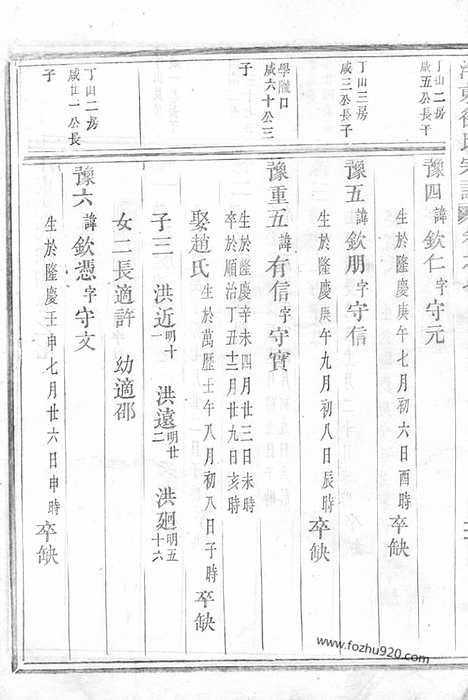 丁山二房
咸五公長子
豫四諱欽仁字守元
生於隆慶庚午七月初六日酉時卒缺
丁山三房
咸三公長子
豫五諱欽朋字守信
生於隆慶庚午九月初八日辰時卒缺
學隴口
咸六十公三
子
豫重五諱有信字守寶
生於隆慶辛未四月廿三日未時
卒於順治丁丑十二月廿九日亥時
娶趙氏生於萬歷壬午八月初八日子時卒缺
子三 洪近明十一 洪遠明廿二 洪廻明五十六
女二長適許 幼適邵
丁山二房
咸廿一公長
子
豫六諱欽憑字守文
生於隆慶壬申七月廿六日申時卒缺
www.fozhu920.com